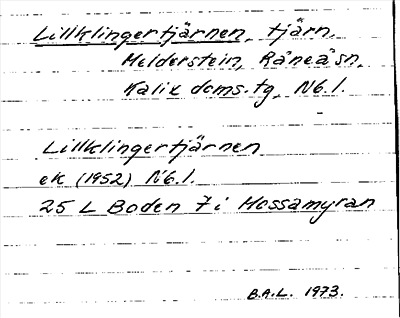 Lillklingertjärnen, tjärn,
Melderstein, Råneå sn,
Kalix doms.tg, Nb.l.
Lillklingertjärnen
ek (1952) Nb.l.
25 L Boden 7i Mossamyran
B.A.L. 1973.